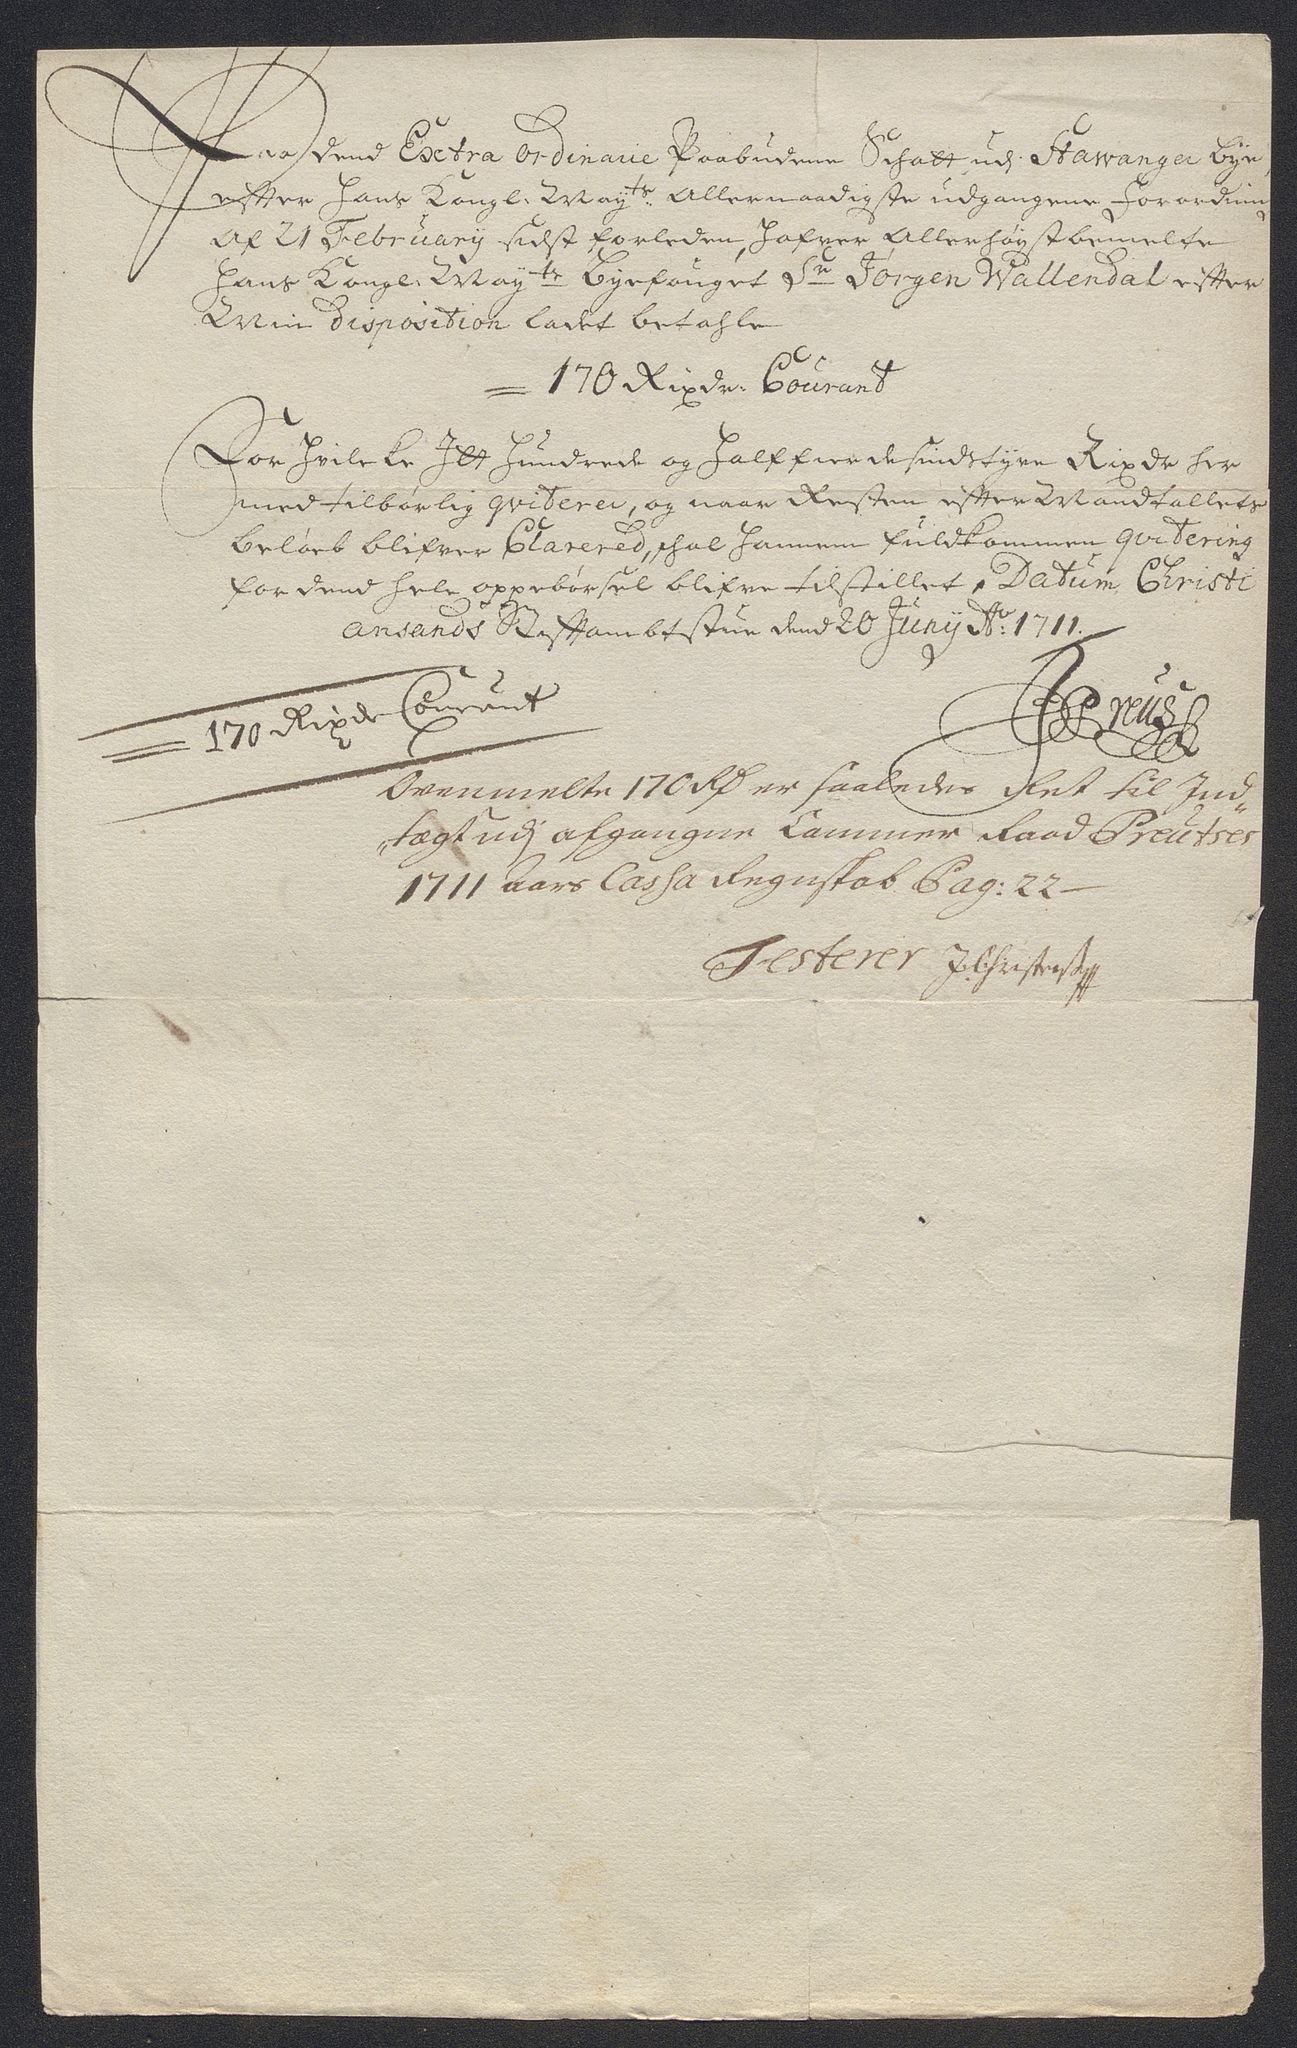 Paa dend Extra Ordinarie Paabudene Schatt udj Stawanger Bye,
effter Hans Kongl: Mayts: Allernaadigste udgangene Forordning
Af 21 February sidst forleden, Hafver Allerhøystbemelte
Hans Kongl: Mayts Byefouget Sr Jørgen Wallendal effter
Min disposition ladet betahle
= 170 Rixdr: Courant
For Hvilcke Itt Hundrede og Halffierdesindstyve Rixdr her
med tilbørlig qviterer, og naar Resten effter Mandtallets
beløeb blifver Clarered, schal Hannem fuldkommen qvitering
for dend hele oppebørsel blifve tilstillet, Datum Christi
ansands Stifftambtstue dend 20 Juny Ao: 1711.
= 170 Rixdr Courant
Preus
Ovenmelte 170 Rd er saaledes ført til Ind„
„tægt udj afgangne Cammer Raad Preutses
1711 Aars Cassa Regnskab Pag: 22 —
Testerer J: Christensen